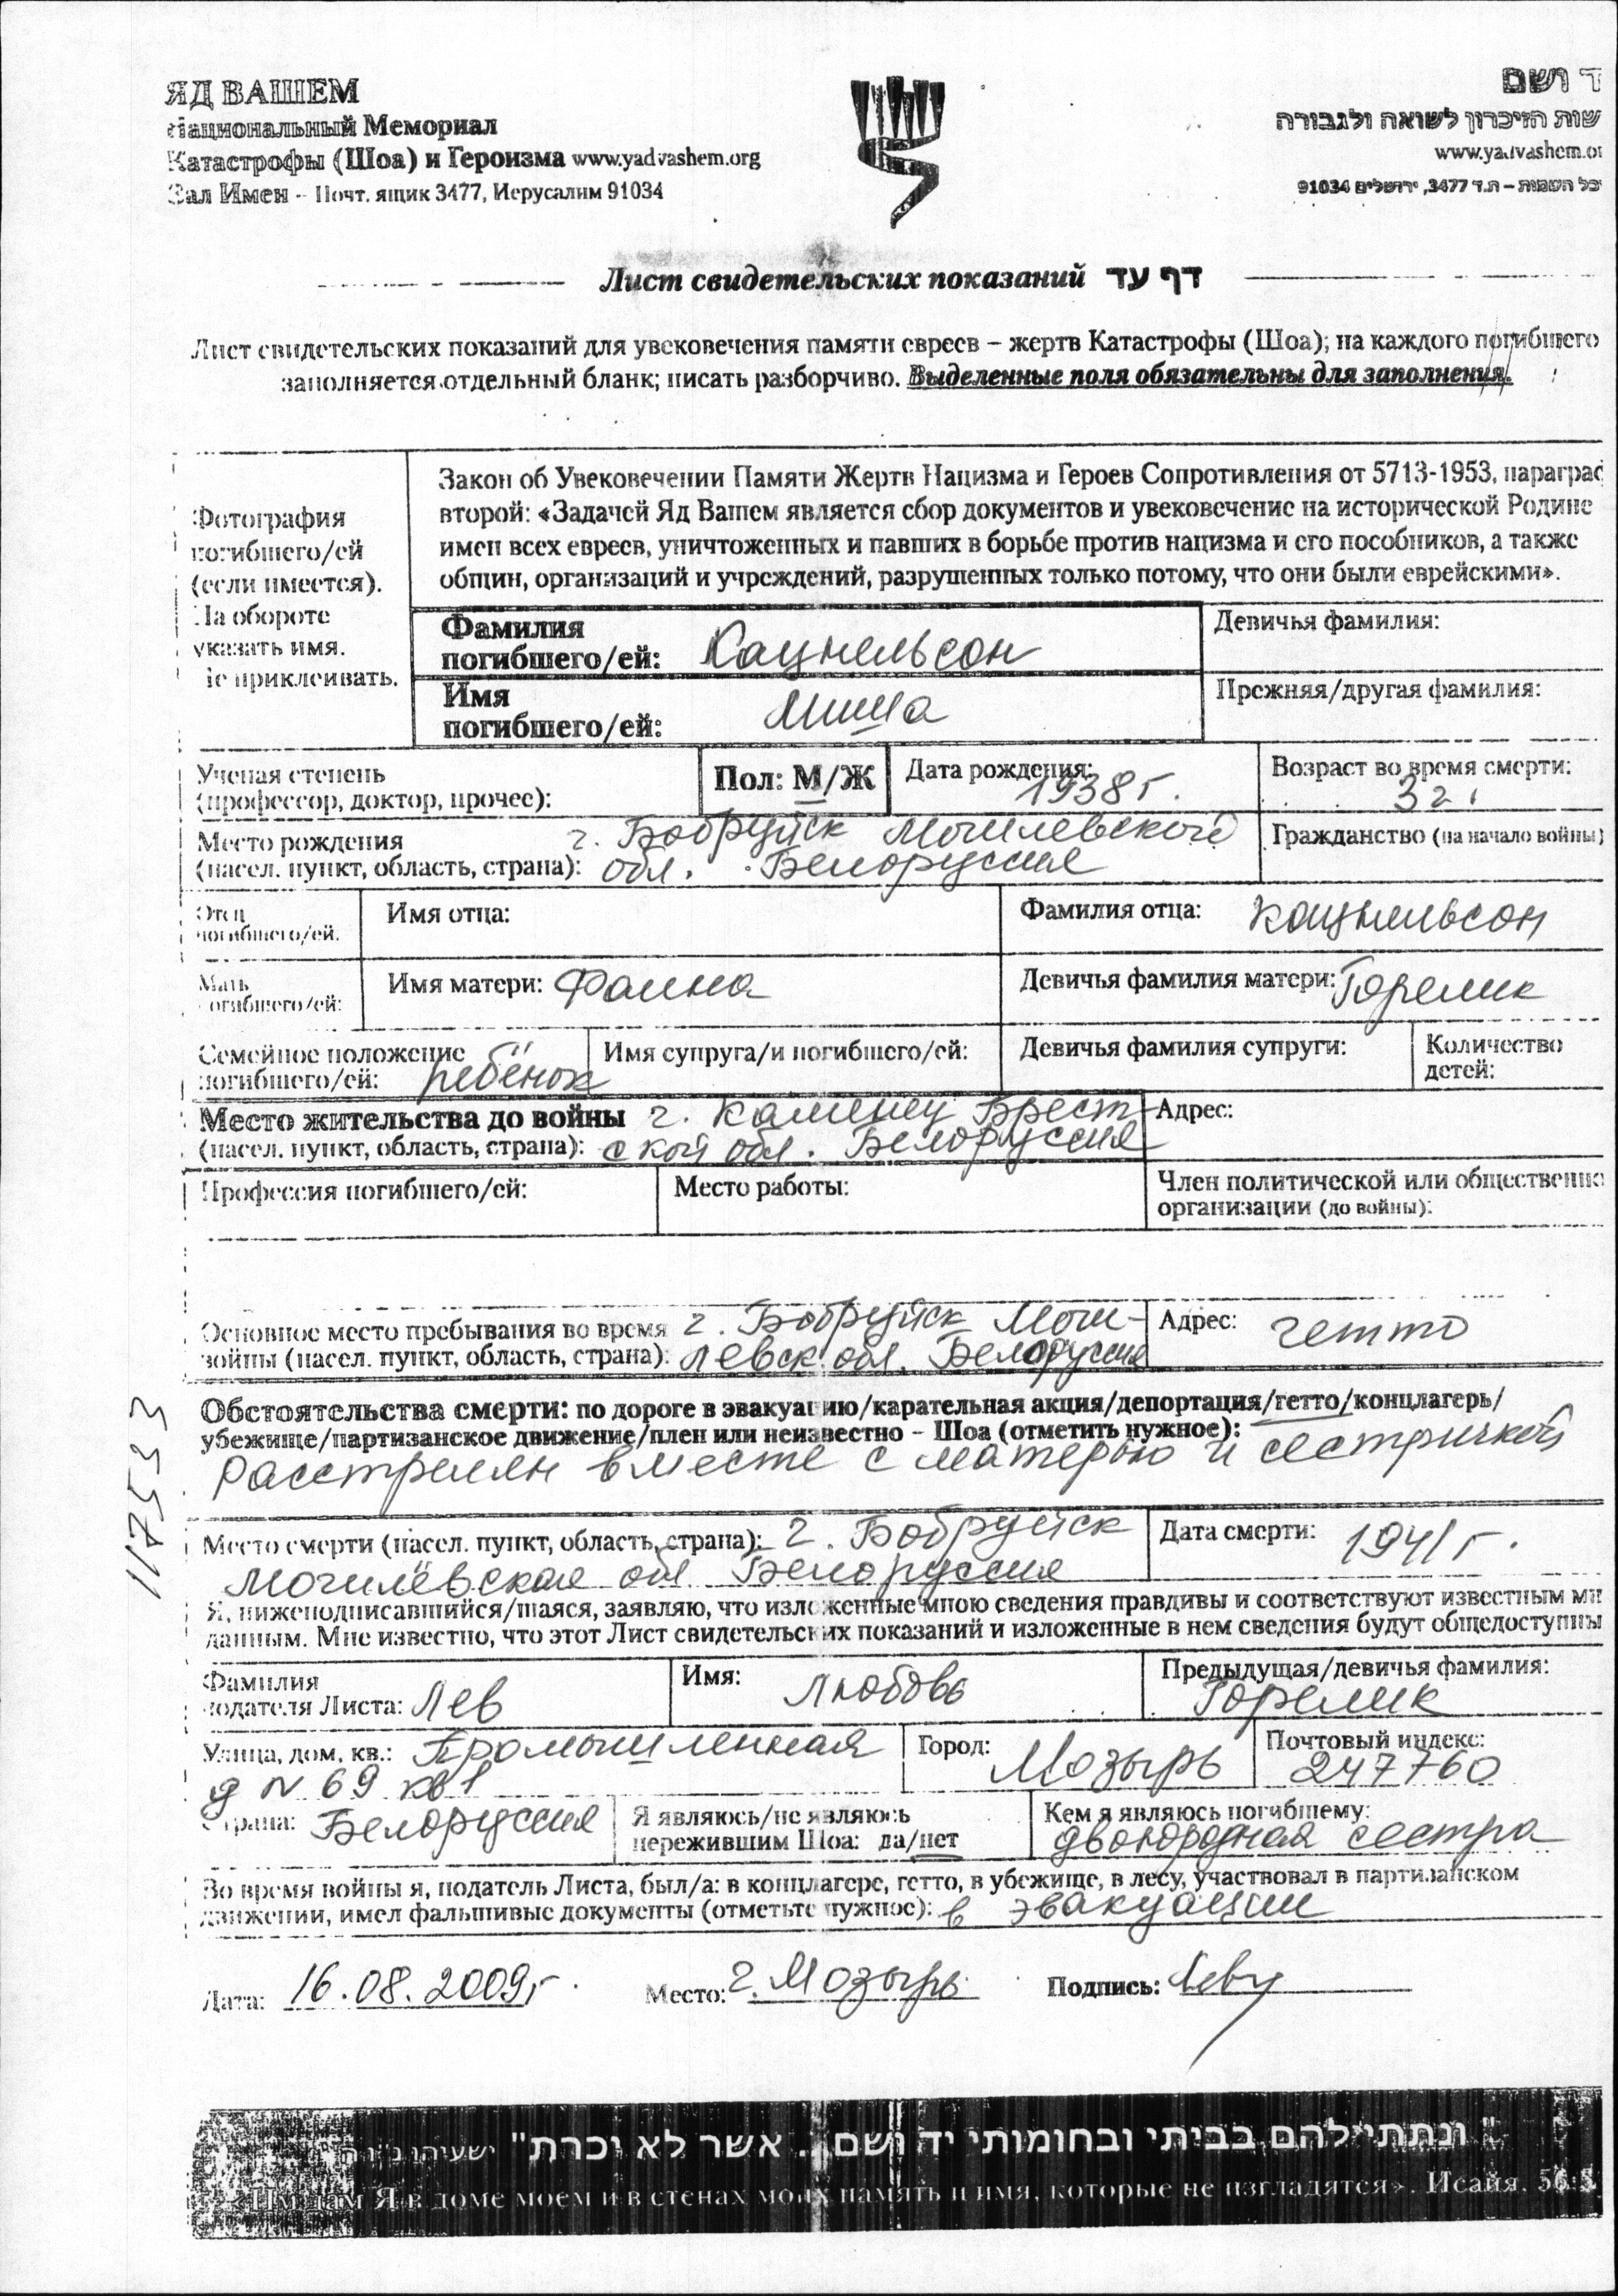 ЯД ВАШЕМ
Национальный Мемориал
Катастрофы (Шоа) и Героизма www.yadvashem.org
Зал Имен – Почт. ящик 3477, Иерусалим 91034
ד ושם
שות הזיכרון לשואה ולגבורה
www.yadvashem.or
יכל השמות – ת.ד 3477, ירושלים 91034
Лист свидетельских показаний דף עד
Лист свидетельских показаний для увековечения памяти евреев – жертв Катастрофы (Шоа); на каждого погибшего
заполняется отдельный бланк; писать разборчиво. Выделенные поля обязательны для заполнения.
Фотография
погибшего/ей
(если имеется).
На обороте
указать имя.
Не приклеивать.
Закон об Увековечении Памяти Жертв Нацизма и Героев Сопротивления от 5713-1953, параграф
второй: «Задачей Яд Вашем является сбор документов и увековечение на исторической Родине
имен всех евреев, уничтоженных и павших в борьбе против нацизма и его пособников, а также
общин, организаций и учреждений, разрушенных только потому, что они были еврейскими».
Фамилия
погибшего/ей: Кацнельсон
Девичья фамилия:
Имя
погибшего/ей: Миша
Прежняя/другая фамилия:
Ученая степень
(профессор, доктор, прочее):
Пол: М/Ж
Дата рождения: 1938 г.
Возраст во время смерти: 3 г.
Место рождения г. Бобруйск Могилевской
(насел. пункт, область, страна): обл. Белоруссия
Гражданство (на начало войны)
Отец
погибшего/ей.
Имя отца:
Фамилия отца: Кацнельсон
Мать
погибшего/ей:
Имя матери: Фаина
Девичья фамилия матери: Горелик
Семейное положение
погибшего/ей: ребёнок
Имя супруга/и погибшего/ей:
Девичья фамилия супруги:
Количество
детей:
Место жительства до войны г. Каменец Брест-
(насел. пункт, область, страна): ской обл. Белоруссия
Адрес:
Профессия погибшего/ей:
Место работы:
Член политической или общественно
организации (до войны):
Основное место пребывания во время г. Бобруйск Моги-
войны (насел. пункт, область, страна): левск. обл. Белоруссия
Адрес: гетто
Обстоятельства смерти: по дороге в эвакуацию/карательная акция/депортация/гетто/концлагерь/
убежище/партизанское движение/плен или неизвестно – Шоа (отметить нужное):
Расстрелян вместе с матерью и сестричкой
117533
Место смерти (насел. пункт, область, страна): г. Бобруйск
Могилёвская обл Белоруссия
Дата смерти: 1941 г.
Я, нижеподписавшийся/шаяся, заявляю, что изложенные мною сведения правдивы и соответствуют известным мн
данным. Мне известно, что этот Лист свидетельских показаний и изложенные в нем сведения будут общедоступны
Фамилия
подателя Листа: Лев
Имя: Любовь
Предыдущая/девичья фамилия:
Горелик
Улица, дом, кв.: Промышленная
д N 69 кв 1
Город: Мозырь
Почтовый индекс:
247760
Страна: Белоруссия
Я являюсь/не являюсь
пережившим Шоа: да/нет
Кем я являюсь погибшему:
двоюродная сестра
Во время войны я, податель Листа, был/а: в концлагере, гетто, в убежище, в лесу, участвовал в партизанском
движении, имел фальшивые документы (отметьте нужное): в эвакуации
Дата: 16.08.2009г. Место: г. Мозырь Подпись:
"ונתתי להם בביתי ובחומותי יד ושם... אשר לא יכרת" ישעיהו נ"ו ה
«Им дам Я в доме моем и в стенах моих память и имя, которые не изгладятся». Исайя, 56:5